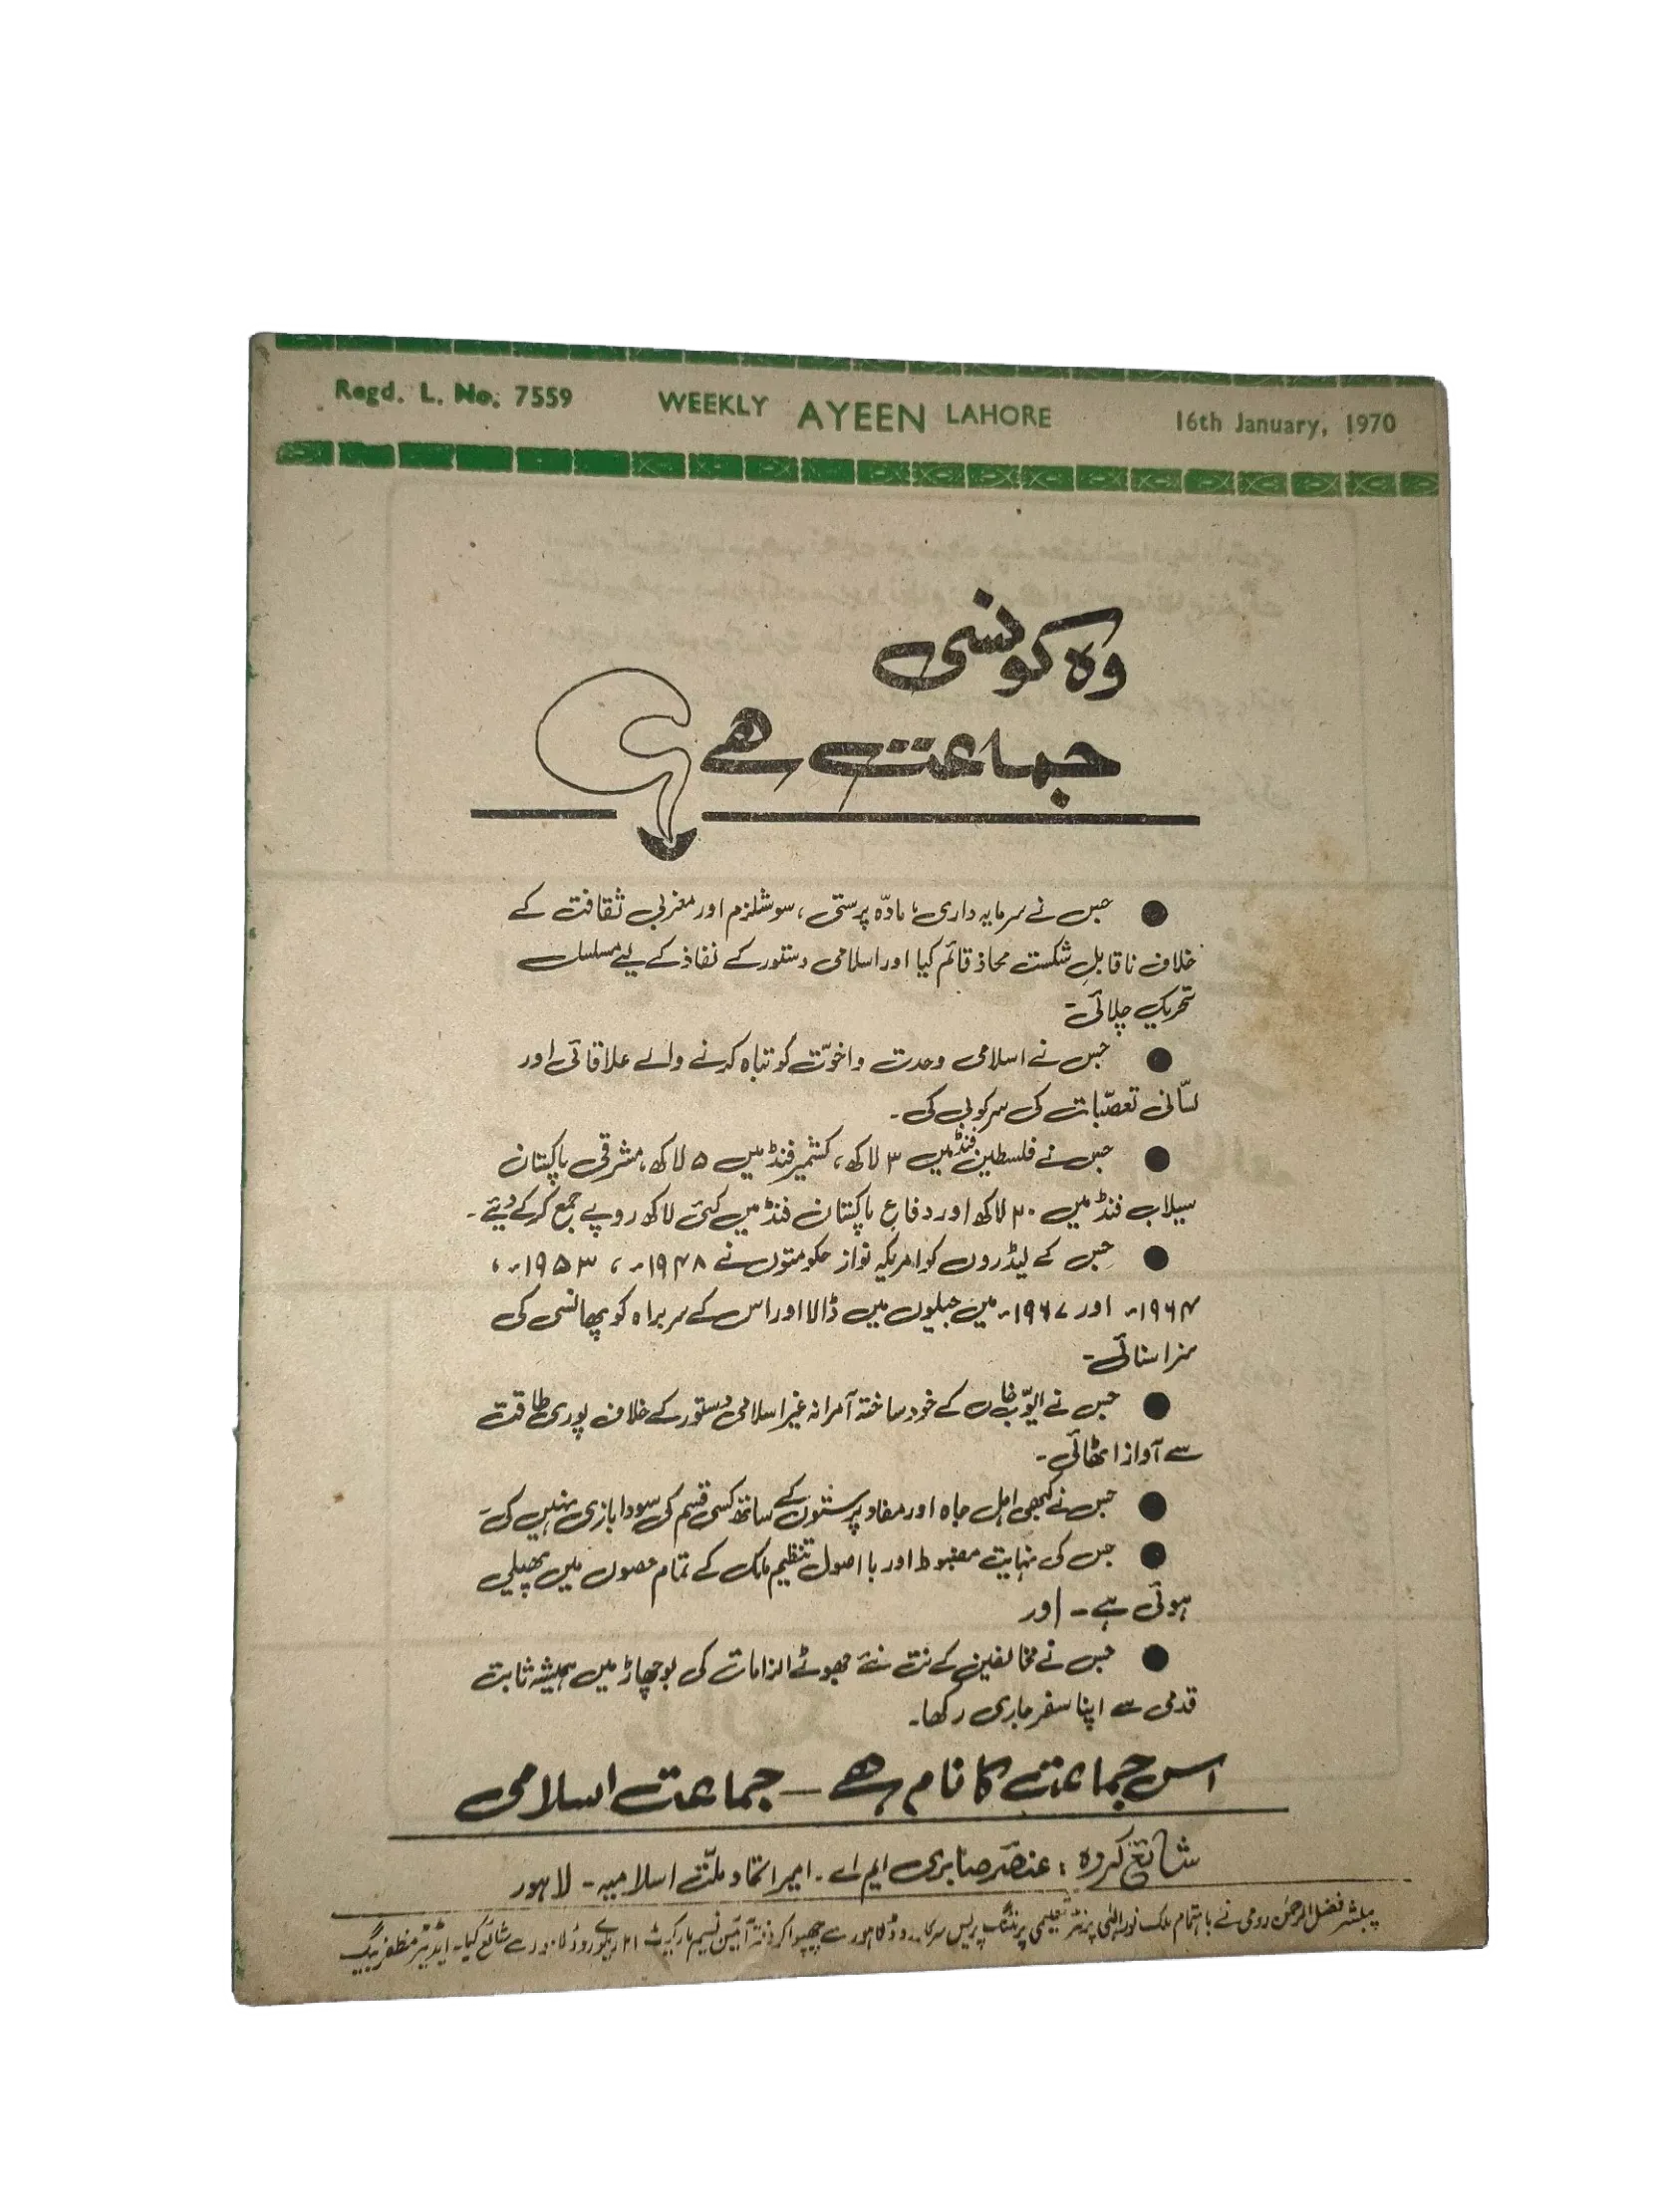 Regd. L. No. 7559 WEEKLY AYEEN LAHORE 16th January, 1970
وہ کونسی
جماعت ہے
● جس نے سرمایہ داری، مادّہ پرستی، سوشلزم اور مغربی ثقافت کے
خلاف ناقابلِ شکست محاذ قائم کیا اور اسلامی دستور کے نفاذ کے لیے مسلسل
تحریک چلائی۔
● جس نے اسلامی وحدت و اخوّت کو تباہ کرنے والے علاقائی اور
لسّانی تعصّبات کی سرکوبی کی۔
● جس نے فلسطین فنڈ میں ۳ لاکھ، کشمیر فنڈ میں ۵ لاکھ، مشرقی پاکستان
سیلاب فنڈ میں ۲۰ لاکھ اور دفاعِ پاکستان فنڈ میں کئی لاکھ روپے جمع کر کے دیئے۔
● جس کے لیڈروں کو امریکہ نواز حکومتوں نے ۱۹۴۸ء، ۱۹۵۳ء،
۱۹۶۴ء اور ۱۹۶۷ء میں جیلوں میں ڈالا اور اس کے سربراہ کو پھانسی کی
سزا سنائی۔
● جس نے ایوّب خاں کے خود ساختہ آمرانہ غیر اسلامی دستور کے خلاف پوری طاقت
سے آواز اٹھائی۔
● جس نے کبھی اہل جاہ اور مفاد پرستوں کے ساتھ کسی قسم کی سودا بازی نہیں کی۔
● جس کی نہایت مضبوط اور با اصول تنظیم ملک کے تمام حصوں میں پھیلی
ہوئی ہے۔ اور
● جس نے مخالفین کے نت نئے جھوٹے الزامات کی بوچھاڑ میں ہمیشہ ثابت
قدمی سے اپنا سفر جاری رکھا۔
اس جماعت کا نام ہے — جماعت اسلامی
شائع کردہ : عنصر صابری ایم اے۔ امیر اتحاد ملّت اسلامیہ۔ لاہور
پبلشر فضل الرحمٰن رومی نے باہتمام ملک نور الٰہی پرنٹر تعلیمی پرنٹنگ پریس سرکلر روڈ لاہور سے چھپوا کر دفتر آئین نسیم مارکیٹ ریلوے روڈ لاہور سے شائع کیا۔ ایڈیٹر مظفر بیگ